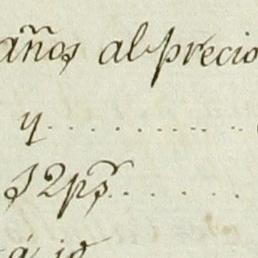 años al precio
y
32 p.s
á io